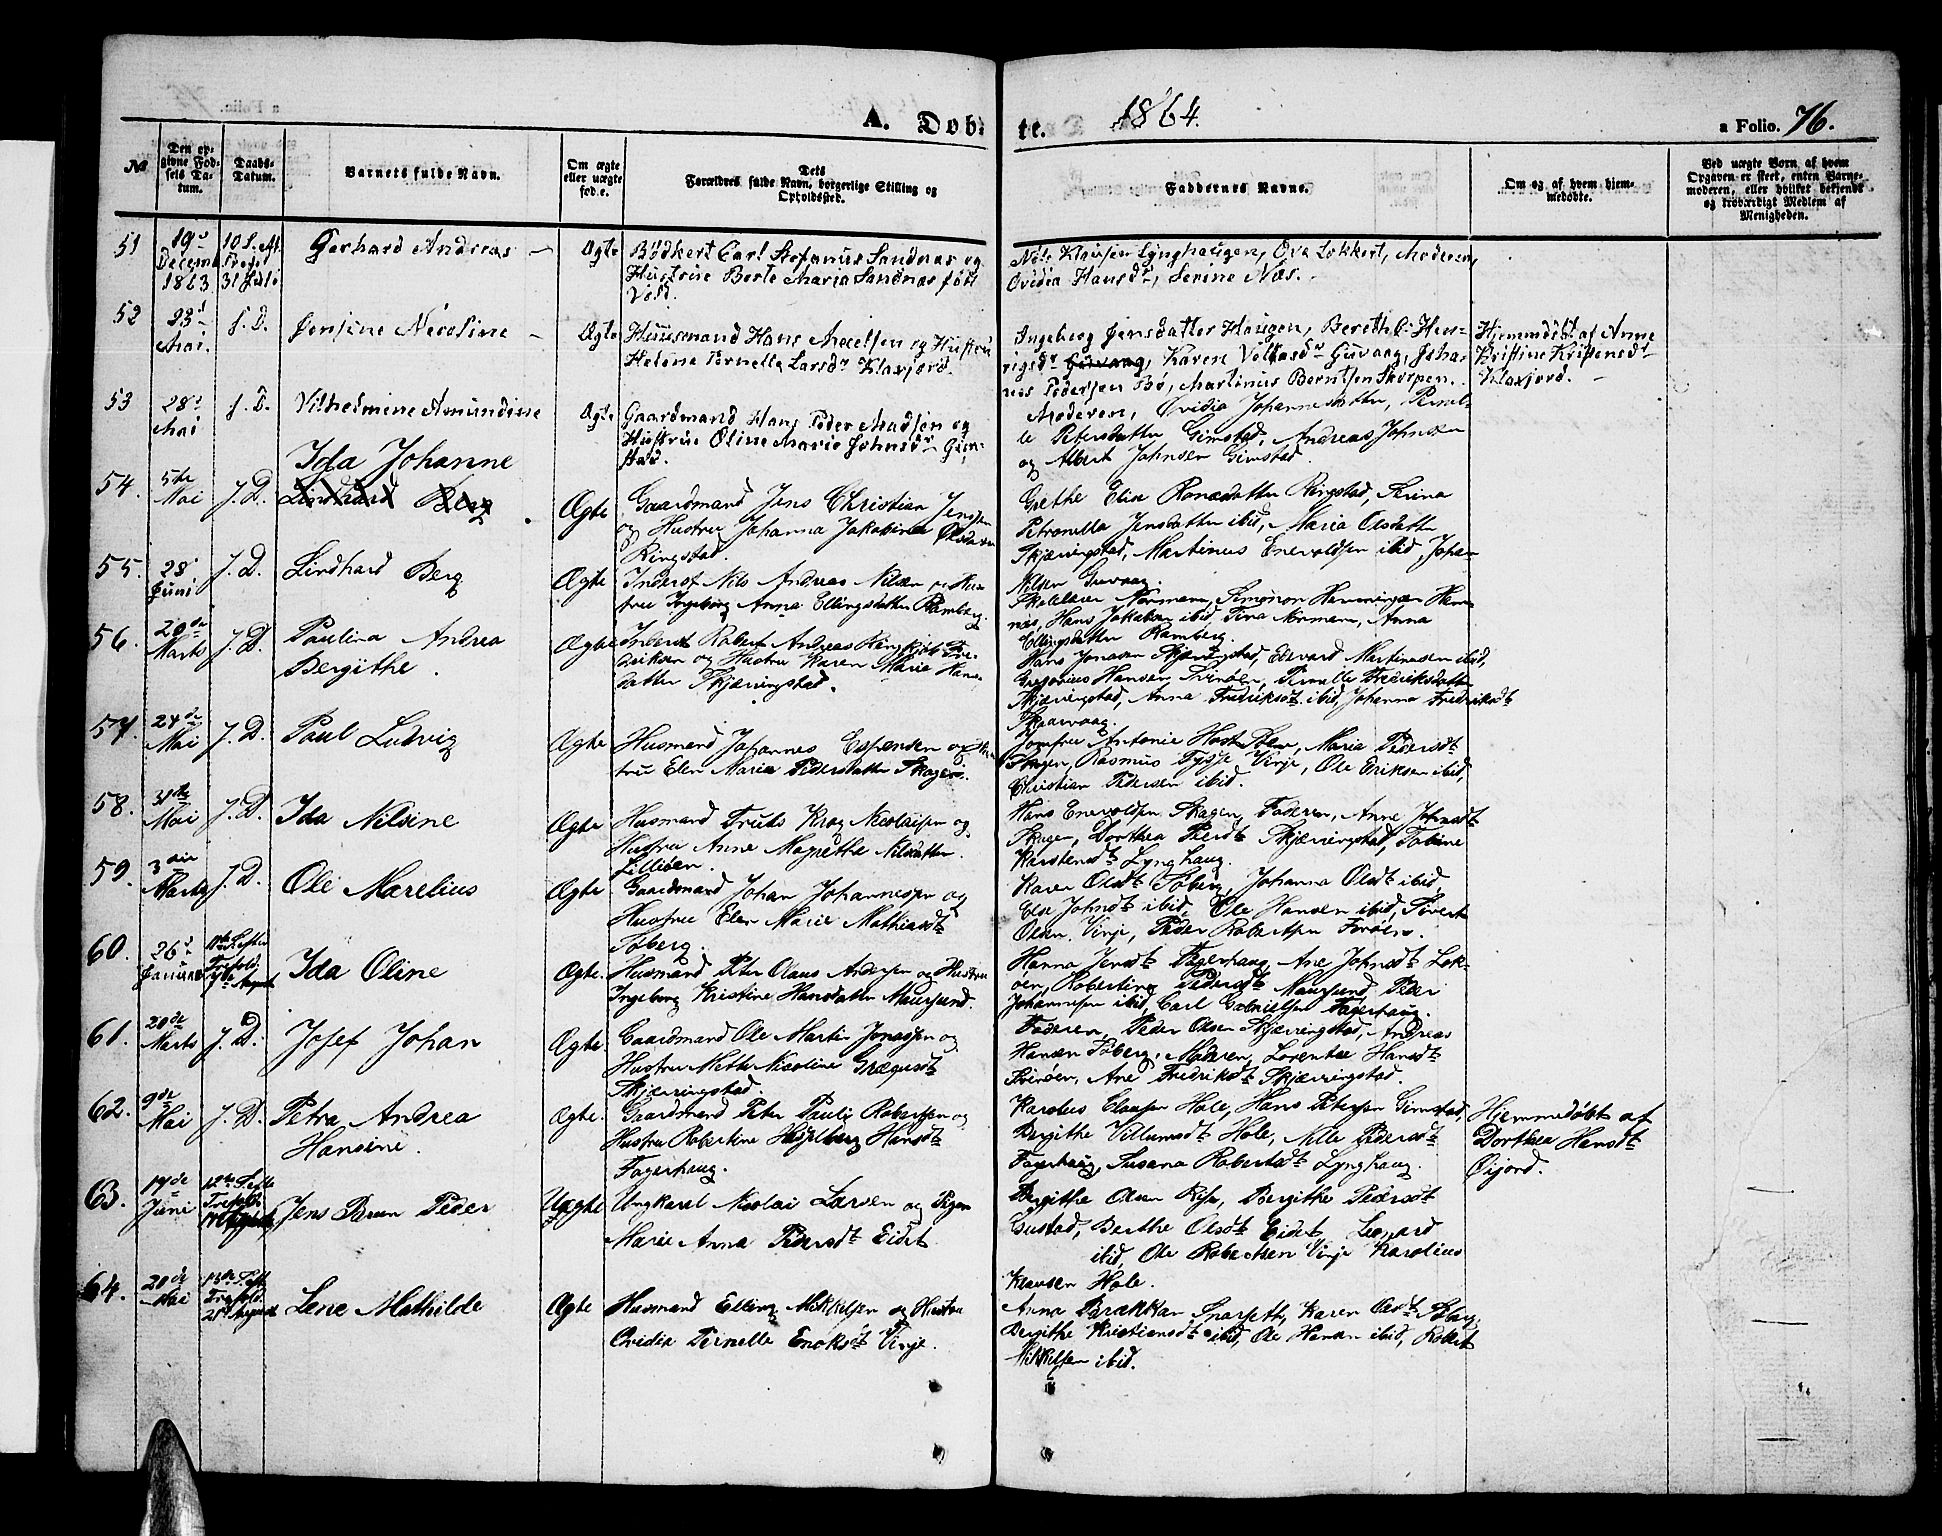 A. Døbte. 1864. a Folio. 76.
№
Den opgivne Fødsels Datum.
Daabs-Datum.
Barnets fulde Navn.
Om ægte eller uægte fød.e.
Dets Forældres fulde Navn, borgerlige Stilling og Opholdssted.
Faddernes Navne.
Om og af hvem hjemmedøbte.
Ved uægte Børn, af hvem Opgaven er skeet, enten Barnemoderen, eller hvilket bekjendt og troværdigt Medlem af Menigheden.
51 19de December 1863. 31 Juli Gerhard Andreas – Ægte Bødkert Carl Stefanus Sandnæs og
Hustrue Berte Maria Sandnæs født
Vold.
Nils Klausen Lynghaugen, Ove Lokkert, Moderen,
Ovidia Hansdr, Serine Næs.
52 23d Mai. J. D. Jensine Nicoline – Ægte Huusmand Hans Axelsen og Hustru
Helena Pernelle Larsdr Klaxfjord.
Ingeborg Jensdatter Haugen, Berith Hen-
rigsdr Guvaag, Karen Volkasdr Guvaag, Joha-
nes Pedersen Bø, Martinus Berntsen Skorpen.
Hjemmdøbt af Anne
Kristine Kristensdr
Klaxfjord. –
53 28d Mai J. D. Vilhelmine Amundine Ægte Gaardmand Hans Peder Madsen og
Hustrue Oline Marie Johnsdr Gim-
stad.
Moderen, Ovidia Johannesdatter, Pernil-
le Petersdatter Gimstad, Andreas Johnsen
og Albert Johnsen Gimstad.
54. 5te Mai J. D. Ida Johanne
Lindhard Berg
Ægte Gaardmand Jens Christian Jensen
og Hustru Johanna Jakobina Olsdatter
Ringstad.
Grethe Elise Ringstad, Serina
Petronella Jensdatter ibid, Maria Olsdatter
Skjæringstad, Martinus Enevoldsen ibid, Johan
Nilsen Guvaag.
55. 28d Juni J. D. Lindhard Berg Ægte Inderst Nils Andreas Nilsen og Hus-
tru Ingeborg Anna Ellingsdatter Ramberg.
Skolelærer Normann, Simonon Henningsen
Hans Jakobsen ibid, Tina Normann, Anna
Ellingsdatter Ramberg.
56. 20de Marts J. D. Paulina Andrea
Bergithe.
Ægte Inderst Robert Andreas Fre-
driksen og Hustru Karen Marie Hans
datter Skjæringstad.
Hans Jonasen Skjæringstad, Edvard Martinusen ibid,
Gregorius Hansen, Pernille Fredriksdatter
Skjæringstad, Anna Fredriksdt ibid, Johanna Fredriksdt
Skaarvaag.
57. 24de Mai J. D. Paul Ludvig Ægte Husmand Johannes Espensen og Hus
tru Elen Maria Pedersdatter Skagen.
Jomfru Antonie Maria Pedersdt
Skagen, Rasmus Vinje, Ole Eriksen ibid,
Christian Pedersen ibid.
58. 31te Mai J. D. Ida Nilsine Ægte Husmand Truls Krog Nicolaisen og
Hustru Anne Magretha Nilsdatter
Lilleøen.
Hans Enevoldsen Skagen, Faderen, Anne Johnsdt
Skagen, Dorthea Skjæringstad, Tobine
Karstensdt Lynghaug.
59. 3die Marts J. D. Ole Marelius Ægte Gaardmand Johan Johannesen og
Hustrue Elen Marie Mathiasdt
Søberg.
Karen Olsdt Søberg, Johanna Olsdt ibid,
Else Johnsdt ibid, Ole Hansen ibid, Sivert
Olsen Vinje, Peder Robertsen Forøen.
60. 26d Januar 7de August Ida Oline Ægte. Husmand Peter Olaus Andersen og Hustru
Ingeborg Kristine Hansdatter Maursund.
Hanna Jensdt Fagerhaug, Ane Johnsdt Lok-
øen, Robertine Pedersdt Maursund, Peder
Johannesen ibid, Carl Gabrielsen Fagerhaug.
61. 20de Marts J. D. Josef Johan Ægte. Gaardmand Ole Martin Jonassen og
Hustru Mette Nicoline
Skjæringstad.
Faderen, Peder Olsen Skjæringstad, Andreas
Hansen Søberg, Moderen, Lorentse Hansdt
Ane Fredriksdt Skjæringstad.
62. 9de Mai J. D. Petra Andrea
Hansine.
Ægte. Gaardmand Peter Pauli Robertsen og
Hustru Robertine Hansdt
Fagerhaug.
Karolus Clausen Hole, Hans Petersen Gimstad,
Bergithe Villumsdt Hole, Nille Pedersdt
Fagerhaug, Susana Robertsdt Lynghaug.
Hjemmedøbt af
Dorthea Hansdt
Øijord.
63. 17de Juni Jens Brun Peder Uægte Ungkarl Nicolai Larsen og Pigen
Marie Anna Pedersdt Eidet
Bergithe Olsen, Bergithe Pedersdt
Gustad, Berthe Olsdt Eidet, Leonard
ibid, Ole Robertsen Vinje Karolius
Klausen Hole.
64. 20de Mai 21de August Lene Mathilde Ægte Husmand Elling Mikkelsen og Hustru
Ovidia Pernelle Enoksdt Vinje.
Anna Brækkan, Karen Olsdt
Bergithe Kristiansdt ibid, Ole Hansen ibid, Robert
Mikkelsen ibid.